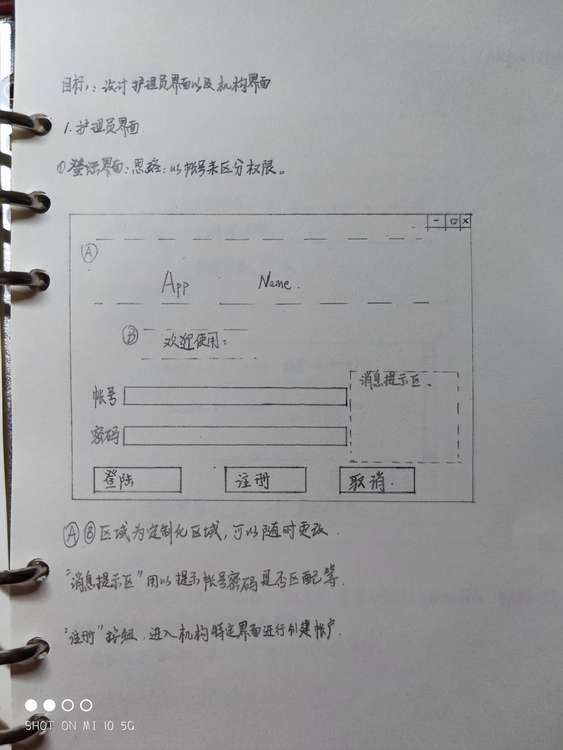 目标：设计护理员界面以及机构界面
1.护理员界面
①登记界面：思路：以帐号来区分权限。
- □ ×
Ⓐ
App Name.
Ⓑ 欢迎使用：
消息提示区、
帐号
密码
登陆 注册 取消.
ⒶⒷ区域为定制化区域，可以随时更改.
"消息提示区"用以提示帐号密码是否匹配等.
"注册"按钮，进入机构特定界面进行创建帐户.
SHOT ON MI 10 5G